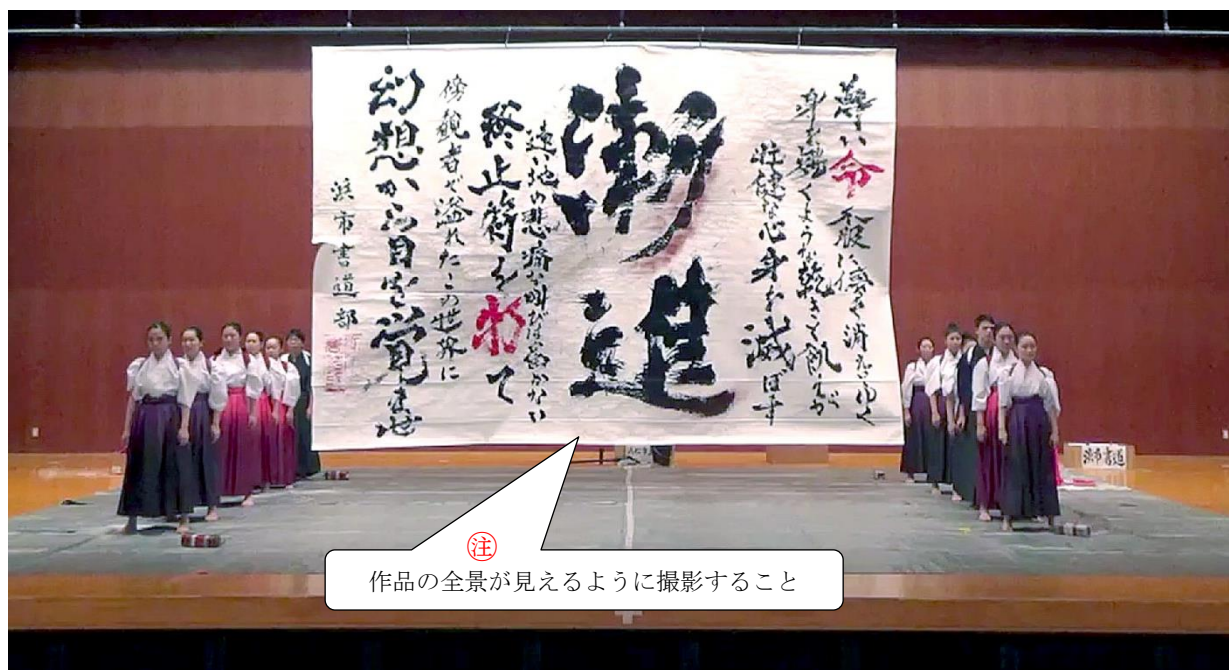 い命に儚く消えゆく
身を焼くような乾きと飢えが
壮健な心身を滅ぼす
漸進
遠い地の悲痛な叫びは届かない
終止符を求めて
傍観者で溢れたこの世界に
幻想から目を覚ませ
浜市書道部
浜市書道
注
作品の全景が見えるように撮影すること